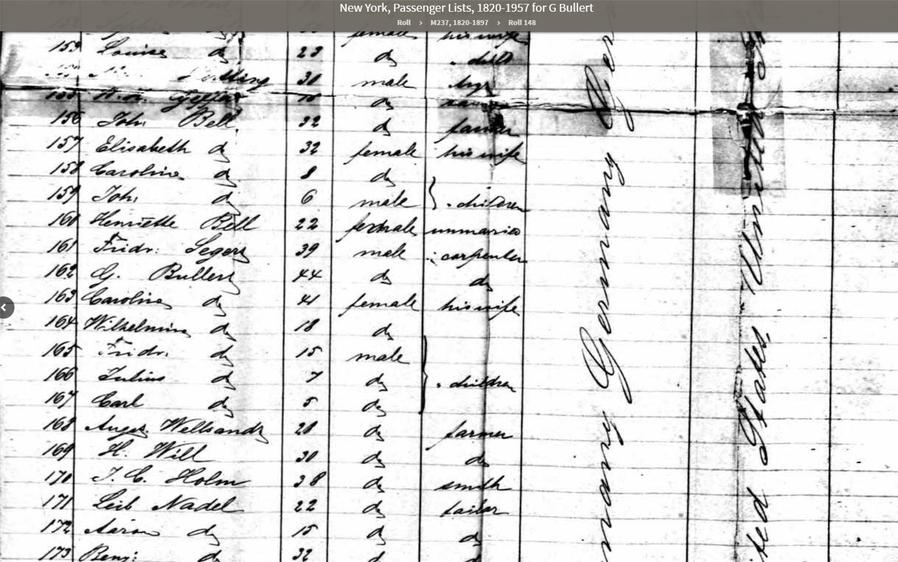 New York, Passenger Lists, 1820-1957 for G Bullert
Roll > M237, 1820-1897 > Roll 148
female his wife
153 Louise do 23 do child
30 male
do
156 Joh: Bell 32 do farmer
157 Elisabeth do 32 female his wife
158 Caroline do 8 do
159 Joh: do 6 male children
160 Henriette Bell 22 female unmarried
161 Fridr: Segers 39 male carpenter
162 G. Bullert 44 do do
163 Caroline do 41 female his wife
164 Wilhelmine do 18 do
165 Fridr: do 15 male
166 Julius do 7 do children
167 Carl do 5 do
168 August 28 do farmer
169 H. Will 30 do do
170 J. C. Holm 38 do smith
171 Leib Nadel 22 do tailor
172 Aaron do 15 do do
173 Benj: do 32 do do
Germany Germany
United States United